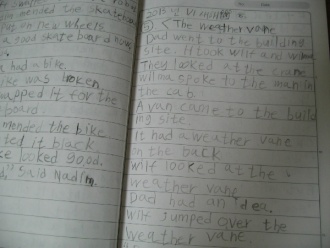 mended the skateboard
new wheels.
a good skate board now
had a bike.
ike was broken
mapped it for the
board.
mended the bike
ted it black
ke looked good.
" said Nadim.
The weather vane
Dad went to the building
site. It took wilf and wilma
They looked at the crane
wilma spoke to the man in
the cab.
A van came to the build
ing site
It had a weather vane
on the back
wilf looked at the
weather vane
Dad had an idea.
wilf jumped over the
weather vane